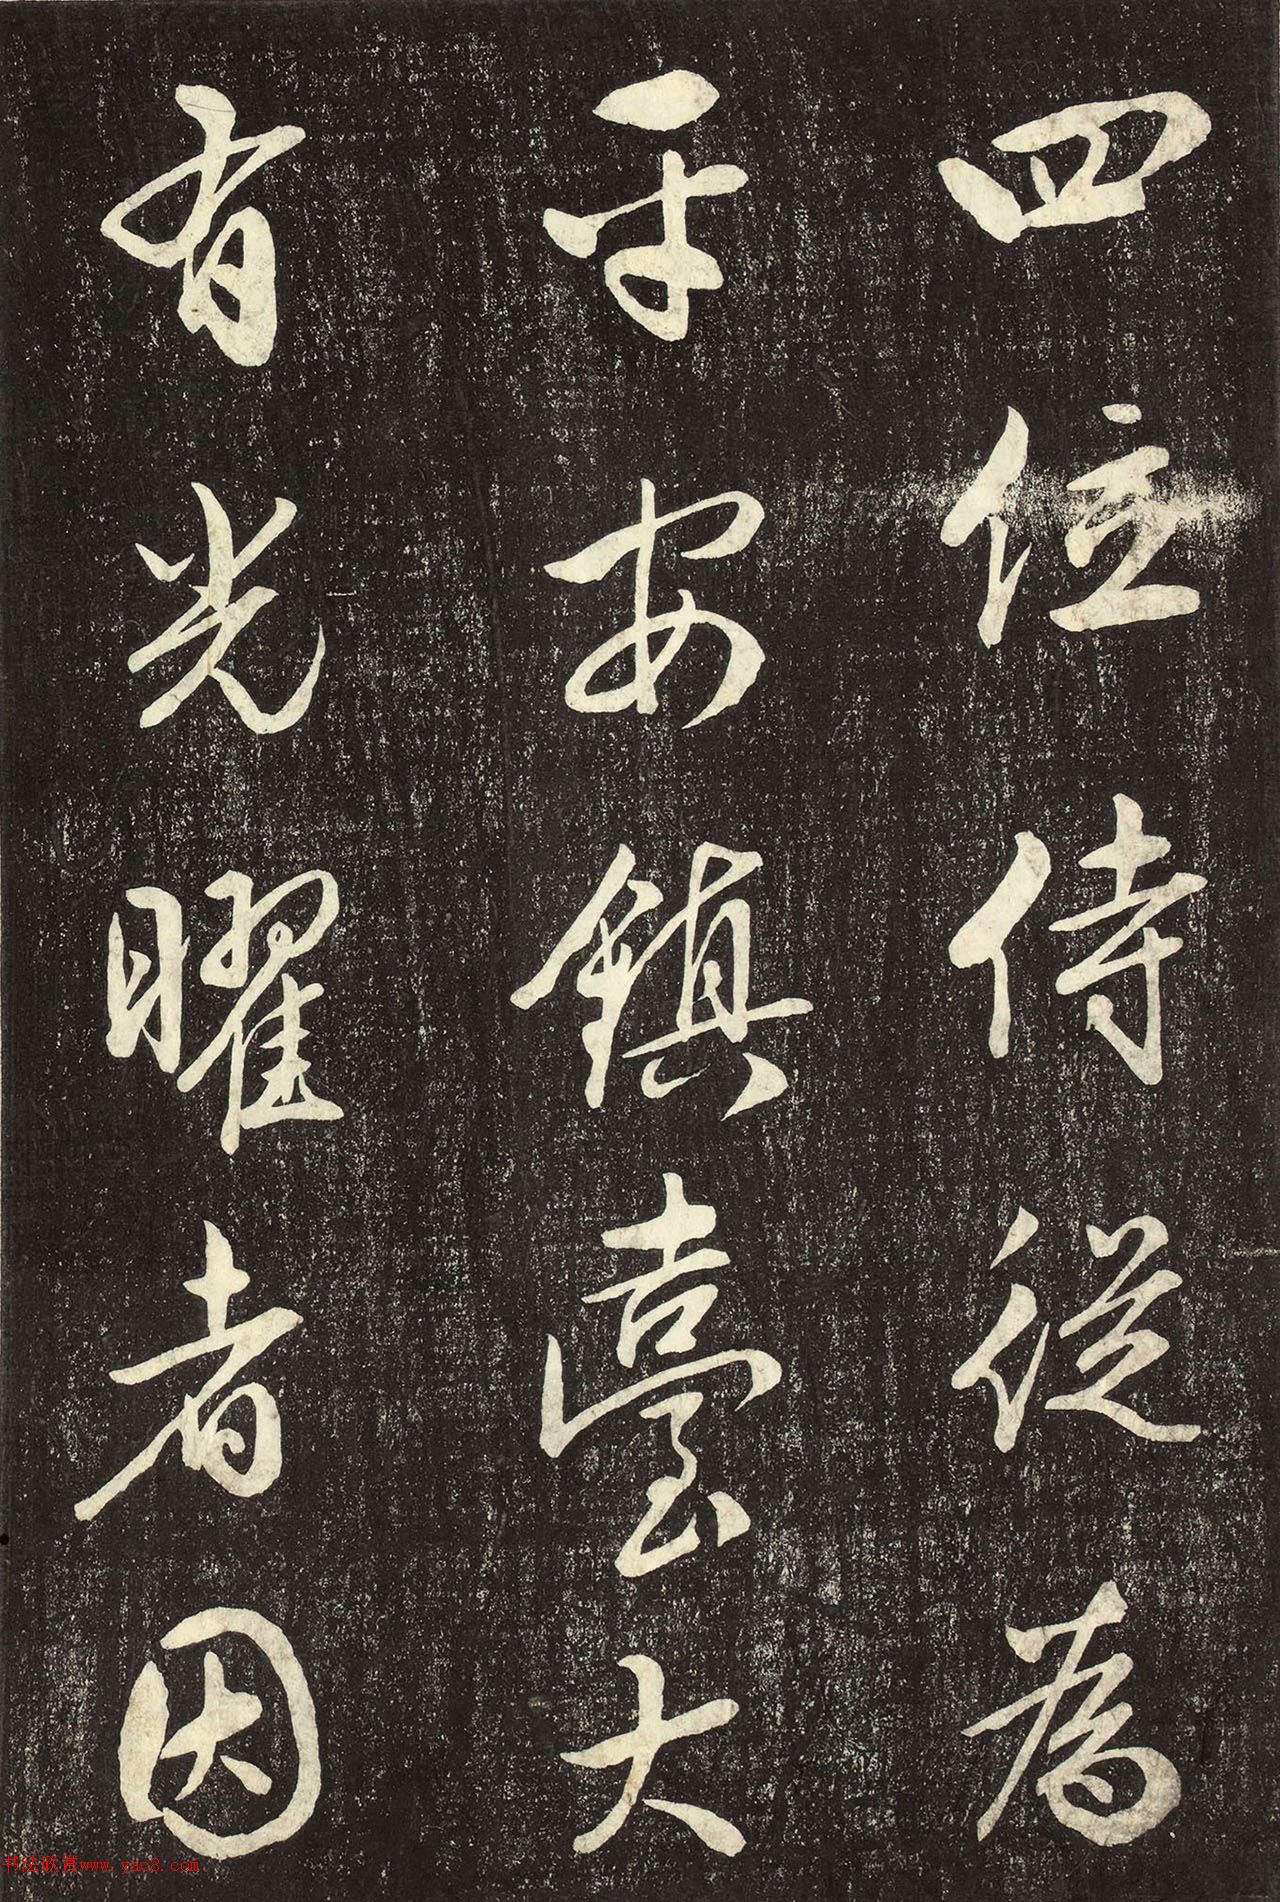 四位侍從為
平安鎮臺大
有光曜者因
书法欣赏www.yac8.com